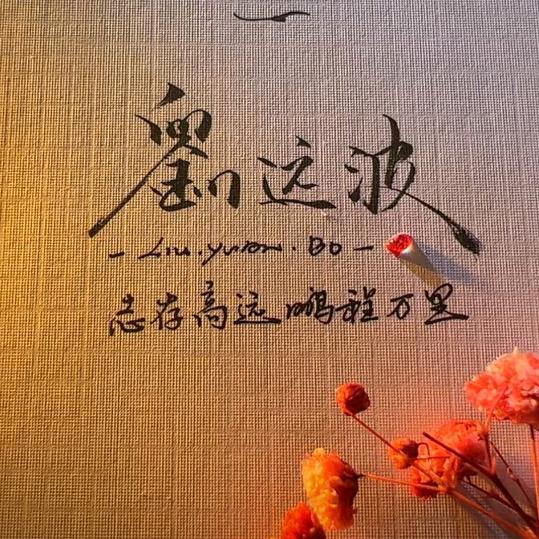 劉远波
- Liu.yuan.Bo -
志存高远鹏程万里